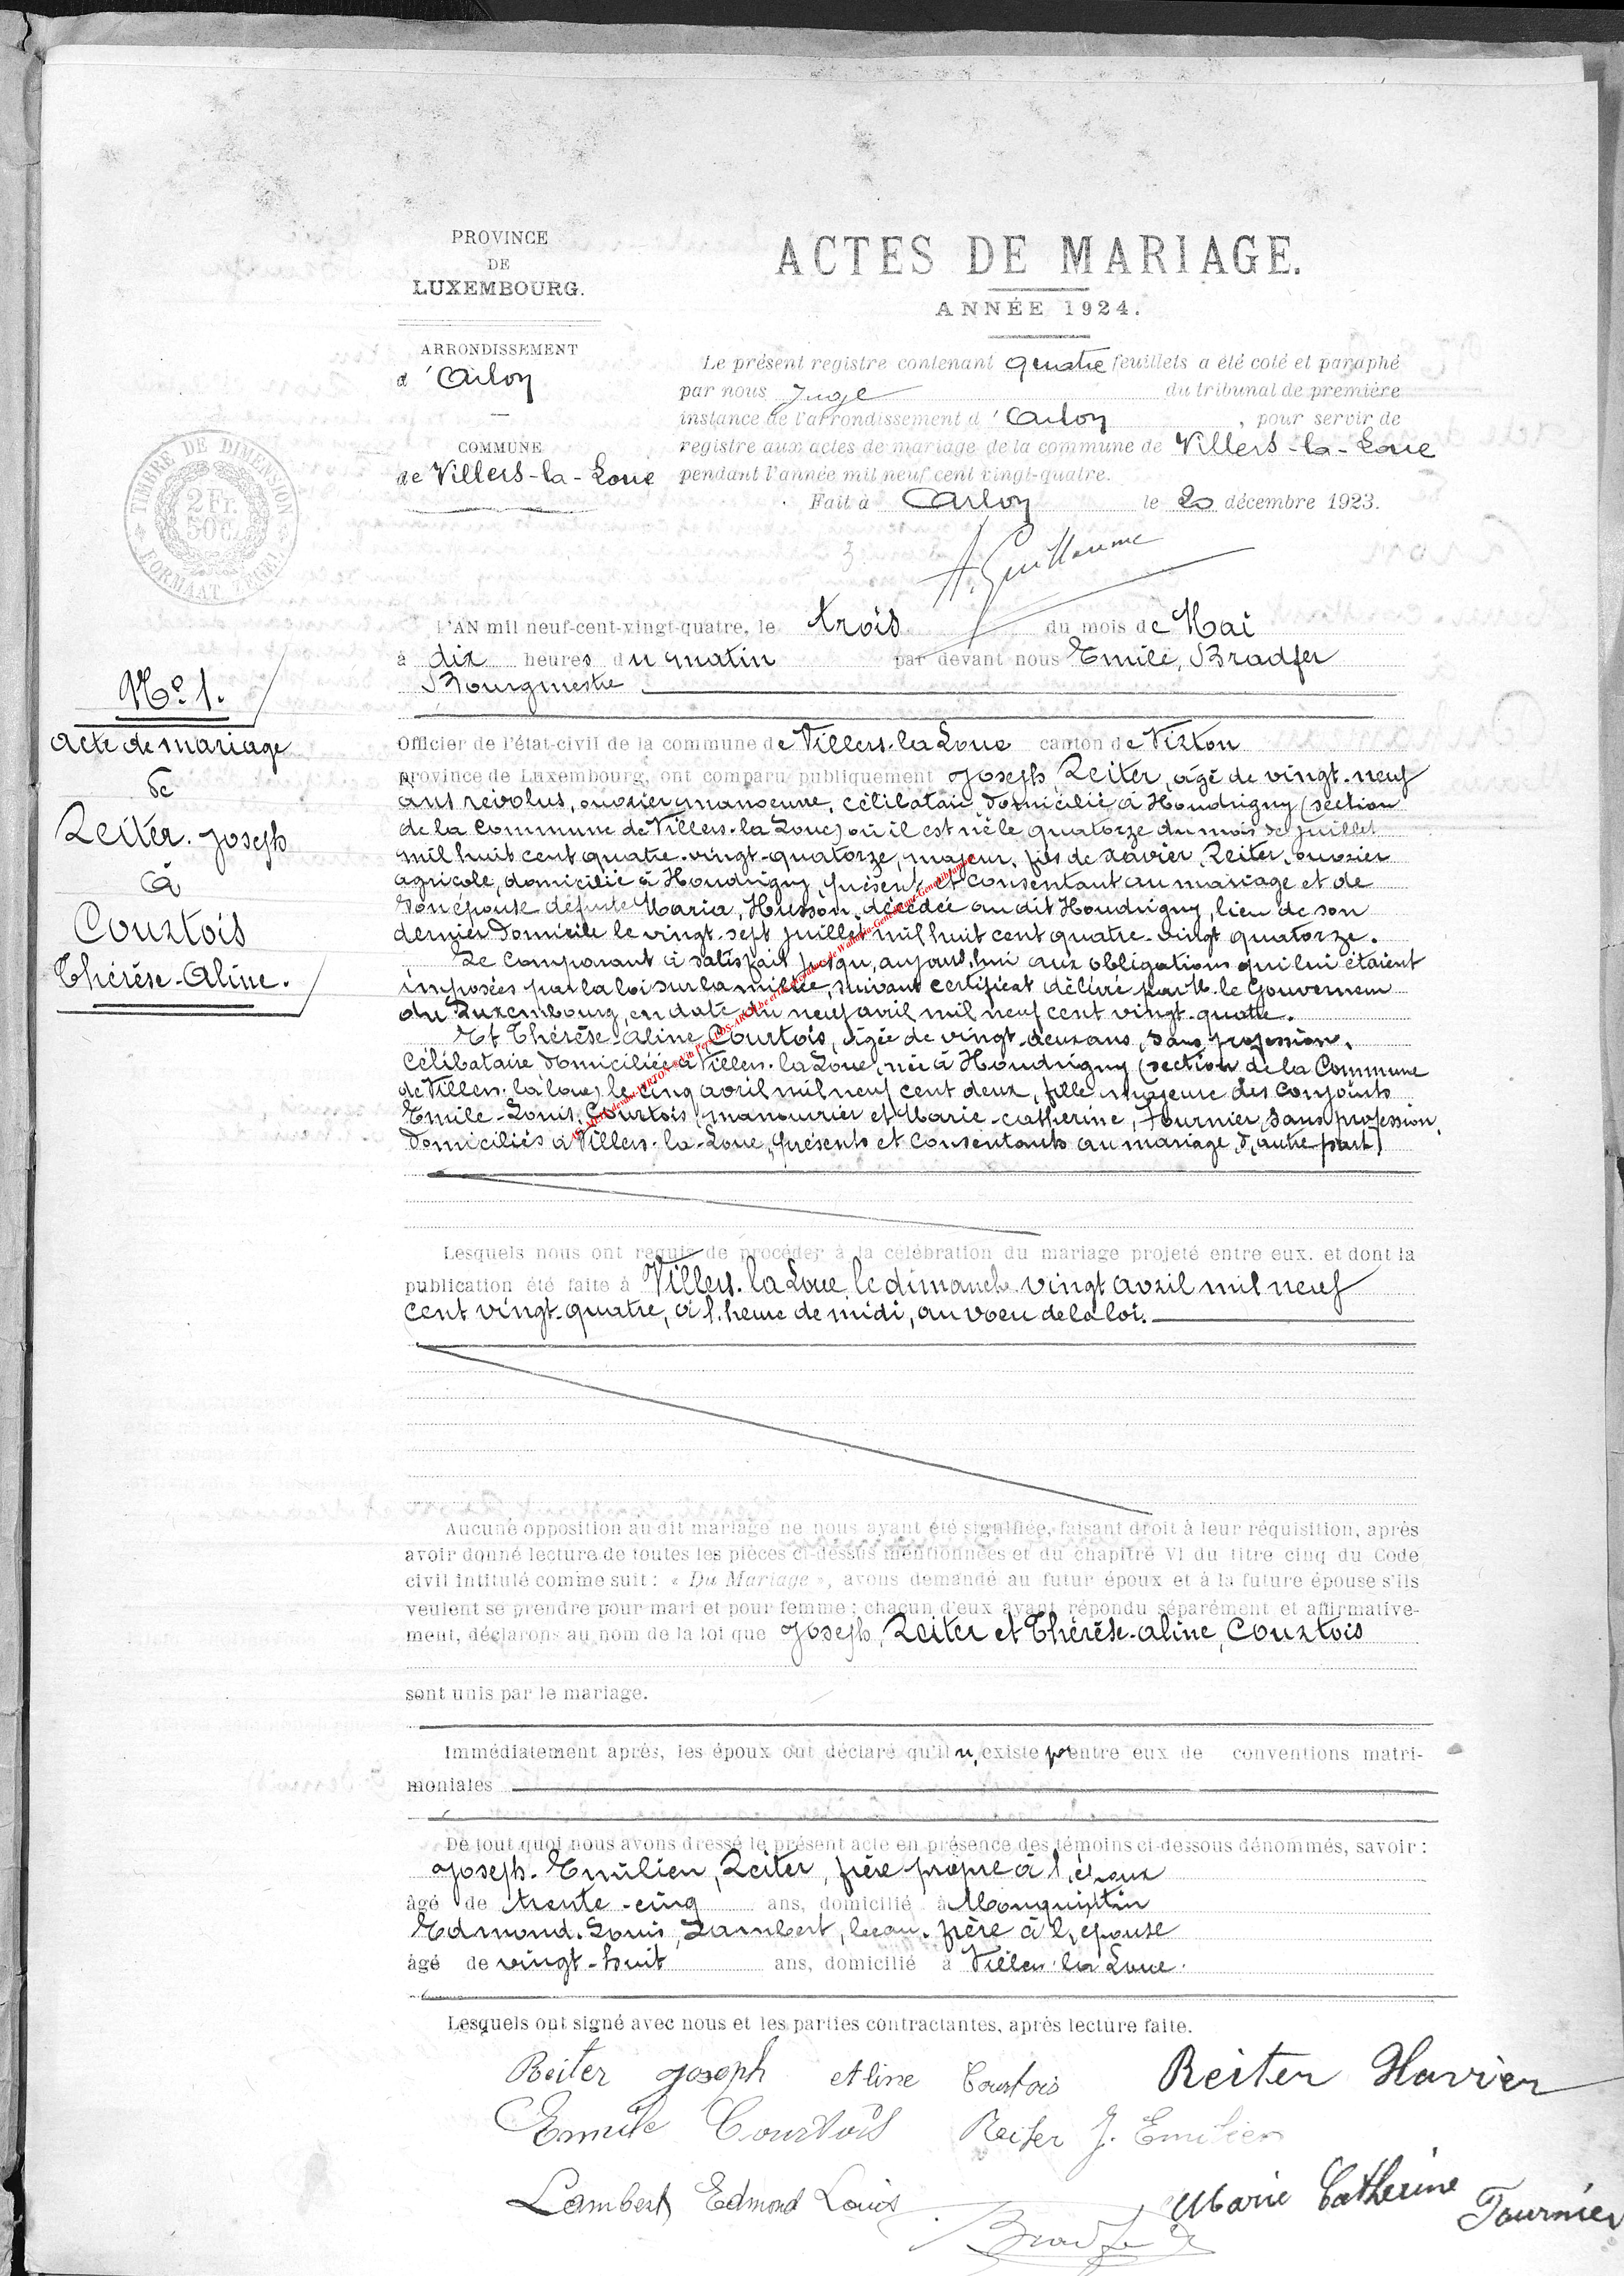 PROVINCE
DE
LUXEMBOURG.
ARRONDISSEMENT
d'Arlon
COMMUNE
de Villers-la-Loue
TIMBRE DE DIMENSION
2 Fr.
50 C.
FORMAAT ZEGEL
ACTES DE MARIAGE.
ANNÉE 1924.
Le présent registre contenant quatre feuillets a été coté et paraphé
par nous Juge du tribunal de première
instance de l'arrondissement d'Arlon, pour servir de
registre aux actes de mariage de la commune de Villers-la-Loue
pendant l'année mil neuf cent vingt-quatre.
Fait à Arlon le 20 décembre 1923.
A. Guillaume
No 1.
Acte de mariage
de
Reiter. Joseph
à
Courtois
Thérèse-Aline.
L'AN mil neuf-cent-vingt-quatre, le trois du mois de Mai
à dix heures du matin par devant nous Emile, Bradfer
Bourgmestre
Officier de l'état-civil de la commune de Villers-la Loue canton de Virton
province de Luxembourg, ont comparu publiquement Joseph Reiter, âgé de vingt-neuf
ans révolus, ouvrier manoeuvre, célibataire domicilié à Houdrigny (section
de la Commune de Villers-la Loue) où il est né le quatorze du mois de juillet
mil huit cent quatre-vingt-quatorze, majeur, fils de Xavier, Reiter, ouvrier
agricole, domicilié à Houdrigny, présent et consentant au mariage et de
son épouse défunte Maria, Husson, décédée au dit Houdrigny, lieu de son
dernier domicile le vingt-sept juillet mil huit cent quatre-vingt quatorze.
Le Comparant a satisfait jusqu'aujourd'hui aux obligations qui lui étaient
imposées par la loi sur la milice, suivant certificat délivré par M. le Gouverneur
du Luxembourg, en date du neuf avril mil neuf cent vingt-quatre.
Et Thérèse-Aline Courtois, âgée de vingt-deux ans, sans profession,
Célibataire domiciliée à Villers-la Loue, née à Houdrigny (section de la Commune
de Villers-la loue) le cinq avril mil neuf cent deux, fille majeure des Conjoints
Emile-Louis, Courtois, manouvrier et Marie-Catherine, Fournier, sans profession,
domiciliés à Villers-la-Loue, présents et consentants au mariage, d'autre part)
Lesquels nous ont requis de procéder à la célébration du mariage projeté entre eux. et dont la
publication été faite à Villers-la Loue le dimanche vingt avril mil neuf
cent vingt-quatre, à l'heure de midi, au voeu de la loi.
Aucune opposition au dit mariage ne nous ayant été signifiée, faisant droit à leur réquisition, après
avoir donné lecture de toutes les pièces ci-dessus mentionnées et du chapitre VI du titre cinq du Code
civil intitulé comme suit : « Du Mariage », avons demandé au futur époux et à la future épouse s'ils
veulent se prendre pour mari et pour femme ; chacun d'eux ayant répondu séparément et affirmative-
ment, déclarons au nom de la loi que Joseph, Reiter et Thérèse-Aline, Courtois
sont unis par le mariage.
Immédiatement après, les époux ont déclaré qu'il n'existe pas entre eux de conventions matri-
moniales
De tout quoi nous avons dressé le présent acte en présence des témoins ci-dessous dénommés, savoir :
Joseph-Emilien, Reiter, frère propre à l'époux
âgé de trente-cinq ans, domicilié à Mouquintin
Edmond-Louis, Lambert, beau-frère à l'épouse
âgé de vingt-huit ans, domicilié à Villers-la Loue.
Lesquels ont signé avec nous et les parties contractantes, après lecture faite.
Reiter Joseph Aline Courtois Reiter Xavier
Emile Courtois Reiter J. Emilien
Lambert Edmond Louis Marie Catherine Fournier
Bradfer E